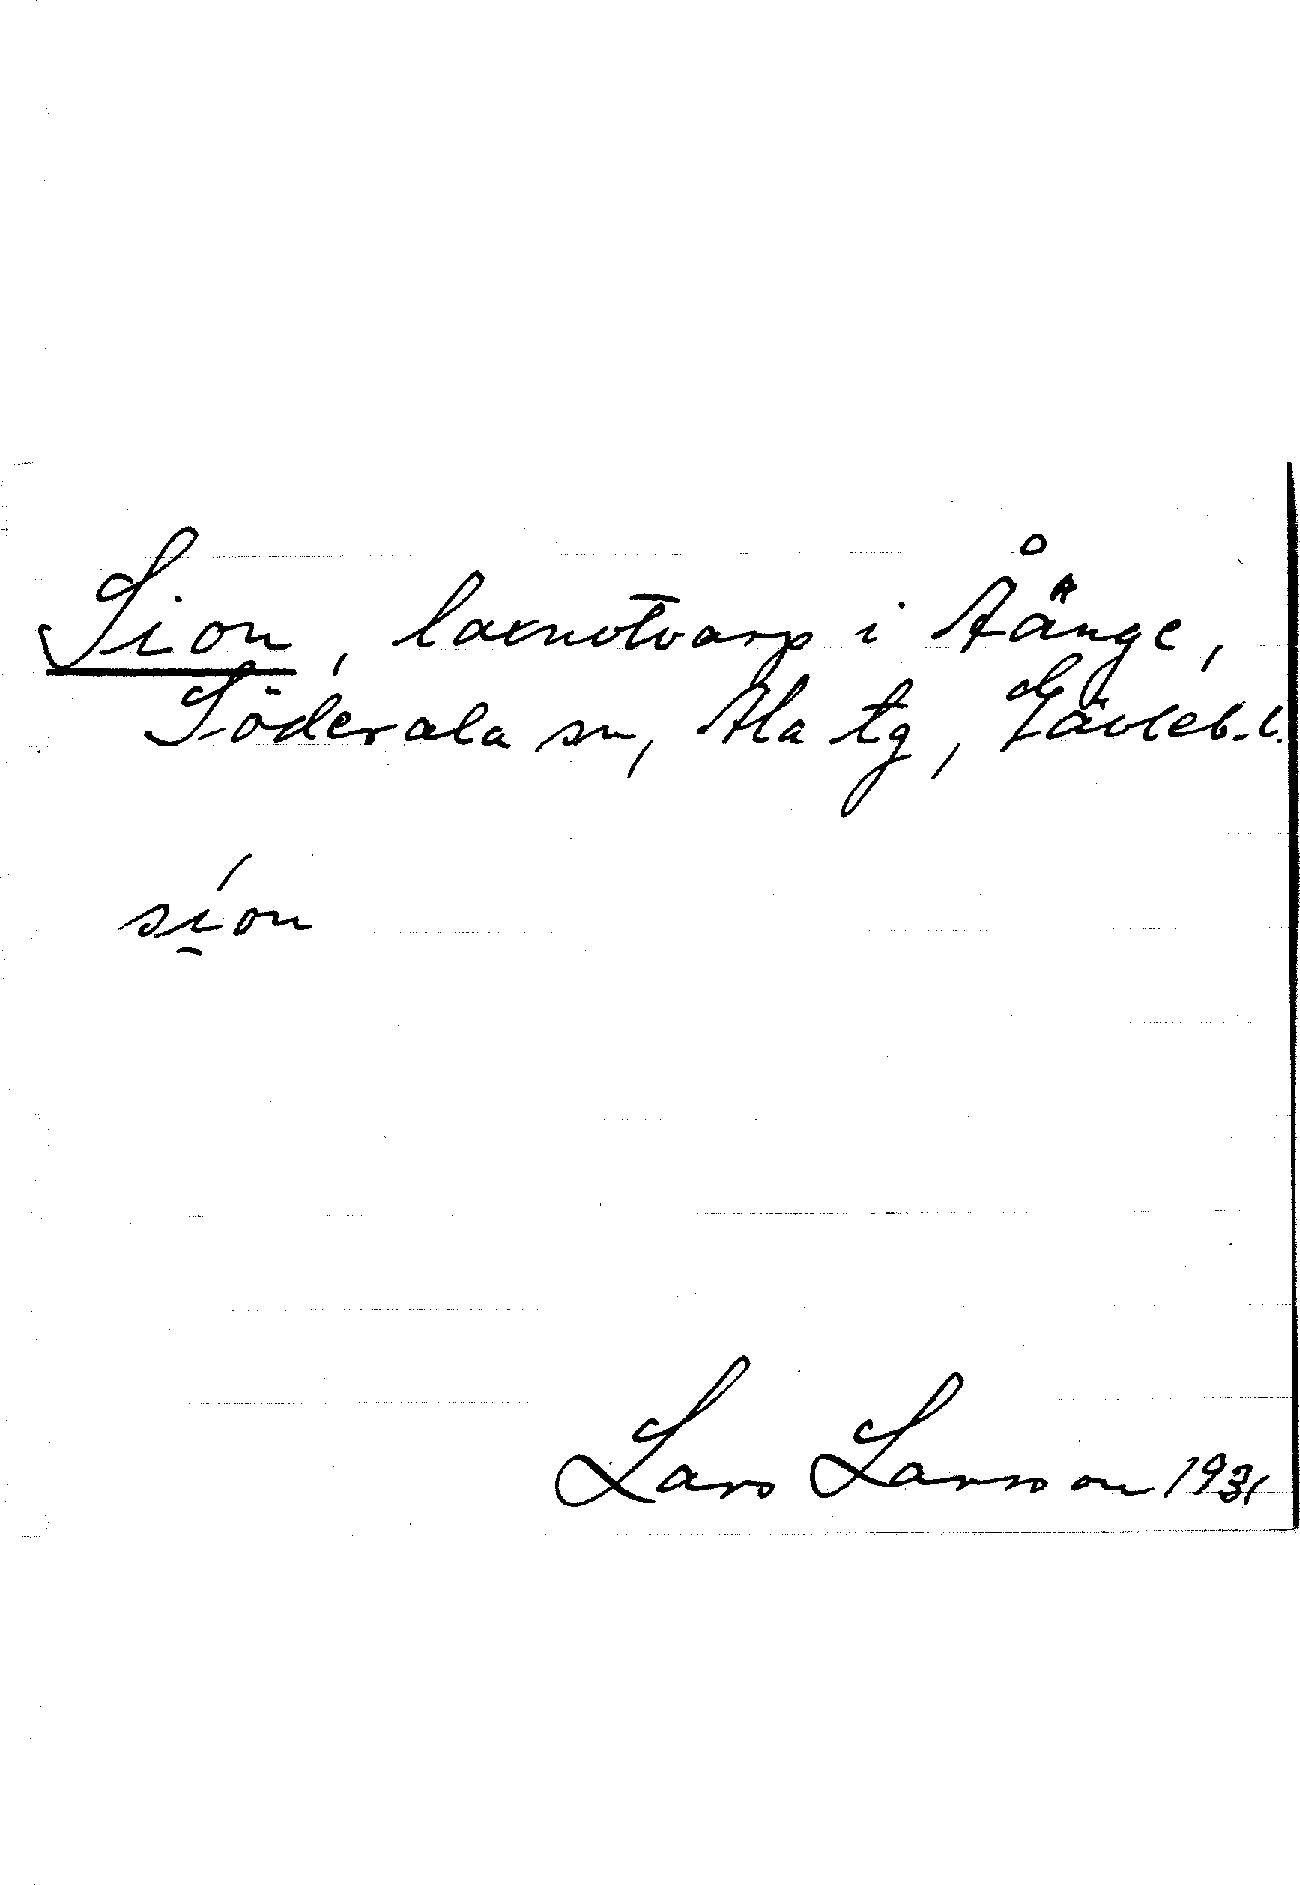 Sion, laxnotvarp i Åänge,
Söderala sn, Ala tg, Gävleb. l.
síon
Lars Larsson 1931